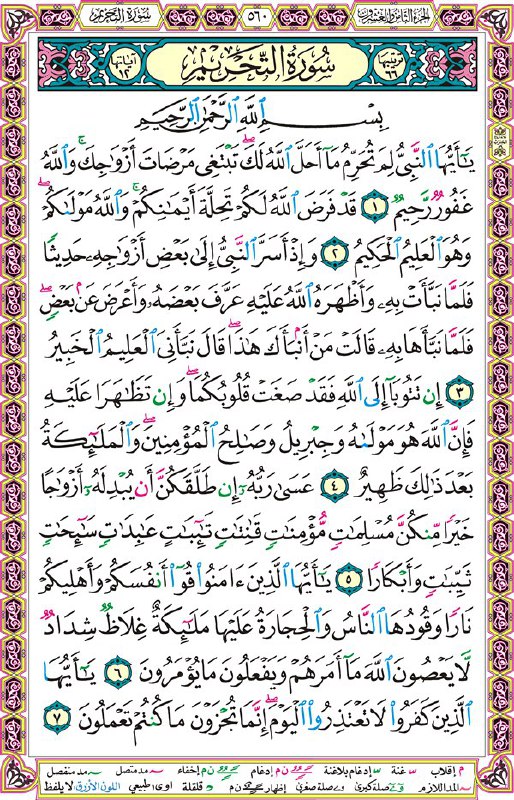 الجزء الثامن والعشرون ٥٦٠ سورة التحريم
ترتيبها ٦٦ سُورَةُ التَّحْرِيمِ آياتها ١٢
بِسْمِ ٱللَّهِ ٱلرَّحْمَٰنِ ٱلرَّحِيمِ
يَٰٓأَيُّهَا ٱلنَّبِىُّ لِمَ تُحَرِّمُ مَآ أَحَلَّ ٱللَّهُ لَكَ ۖ تَبْتَغِى مَرْضَاتَ أَزْوَٰجِكَ ۚ وَٱللَّهُ
غَفُورٌ رَّحِيمٌ ١ قَدْ فَرَضَ ٱللَّهُ لَكُمْ تَحِلَّةَ أَيْمَٰنِكُمْ ۚ وَٱللَّهُ مَوْلَىٰكُمْ ۖ
وَهُوَ ٱلْعَلِيمُ ٱلْحَكِيمُ ٢ وَإِذْ أَسَرَّ ٱلنَّبِىُّ إِلَىٰ بَعْضِ أَزْوَٰجِهِۦ حَدِيثًا
فَلَمَّا نَبَّأَتْ بِهِۦ وَأَظْهَرَهُ ٱللَّهُ عَلَيْهِ عَرَّفَ بَعْضَهُۥ وَأَعْرَضَ عَنۢ بَعْضٍ ۖ
فَلَمَّا نَبَّأَهَا بِهِۦ قَالَتْ مَنْ أَنۢبَأَكَ هَٰذَا ۖ قَالَ نَبَّأَنِىَ ٱلْعَلِيمُ ٱلْخَبِيرُ
٣ إِن تَتُوبَآ إِلَى ٱللَّهِ فَقَدْ صَغَتْ قُلُوبُكُمَا ۖ وَإِن تَظَٰهَرَا عَلَيْهِ
فَإِنَّ ٱللَّهَ هُوَ مَوْلَىٰهُ وَجِبْرِيلُ وَصَٰلِحُ ٱلْمُؤْمِنِينَ ۖ وَٱلْمَلَٰٓئِكَةُ
بَعْدَ ذَٰلِكَ ظَهِيرٌ ٤ عَسَىٰ رَبُّهُۥٓ إِن طَلَّقَكُنَّ أَن يُبْدِلَهُۥٓ أَزْوَٰجًا
خَيْرًا مِّنكُنَّ مُسْلِمَٰتٍ مُّؤْمِنَٰتٍ قَٰنِتَٰتٍ تَٰٓئِبَٰتٍ عَٰبِدَٰتٍ سَٰٓئِحَٰتٍ
ثَيِّبَٰتٍ وَأَبْكَارًا ٥ يَٰٓأَيُّهَا ٱلَّذِينَ ءَامَنُوا۟ قُوٓا۟ أَنفُسَكُمْ وَأَهْلِيكُمْ
نَارًا وَقُودُهَا ٱلنَّاسُ وَٱلْحِجَارَةُ عَلَيْهَا مَلَٰٓئِكَةٌ غِلَاظٌ شِدَادٌ
لَّا يَعْصُونَ ٱللَّهَ مَآ أَمَرَهُمْ وَيَفْعَلُونَ مَا يُؤْمَرُونَ ٦ يَٰٓأَيُّهَا
ٱلَّذِينَ كَفَرُوا۟ لَا تَعْتَذِرُوا۟ ٱلْيَوْمَ ۖ إِنَّمَا تُجْزَوْنَ مَا كُنتُمْ تَعْمَلُونَ ٧
م إقلاب غنة إدغام بلاغنة ن م إدغام ن م إخفاء مد متصل مد منفصل
المد اللازم صلة كبرى وے صلة صغرى إظهار ن م قلقلة اوى طبيعي اللون الأزرق لا يلفظ